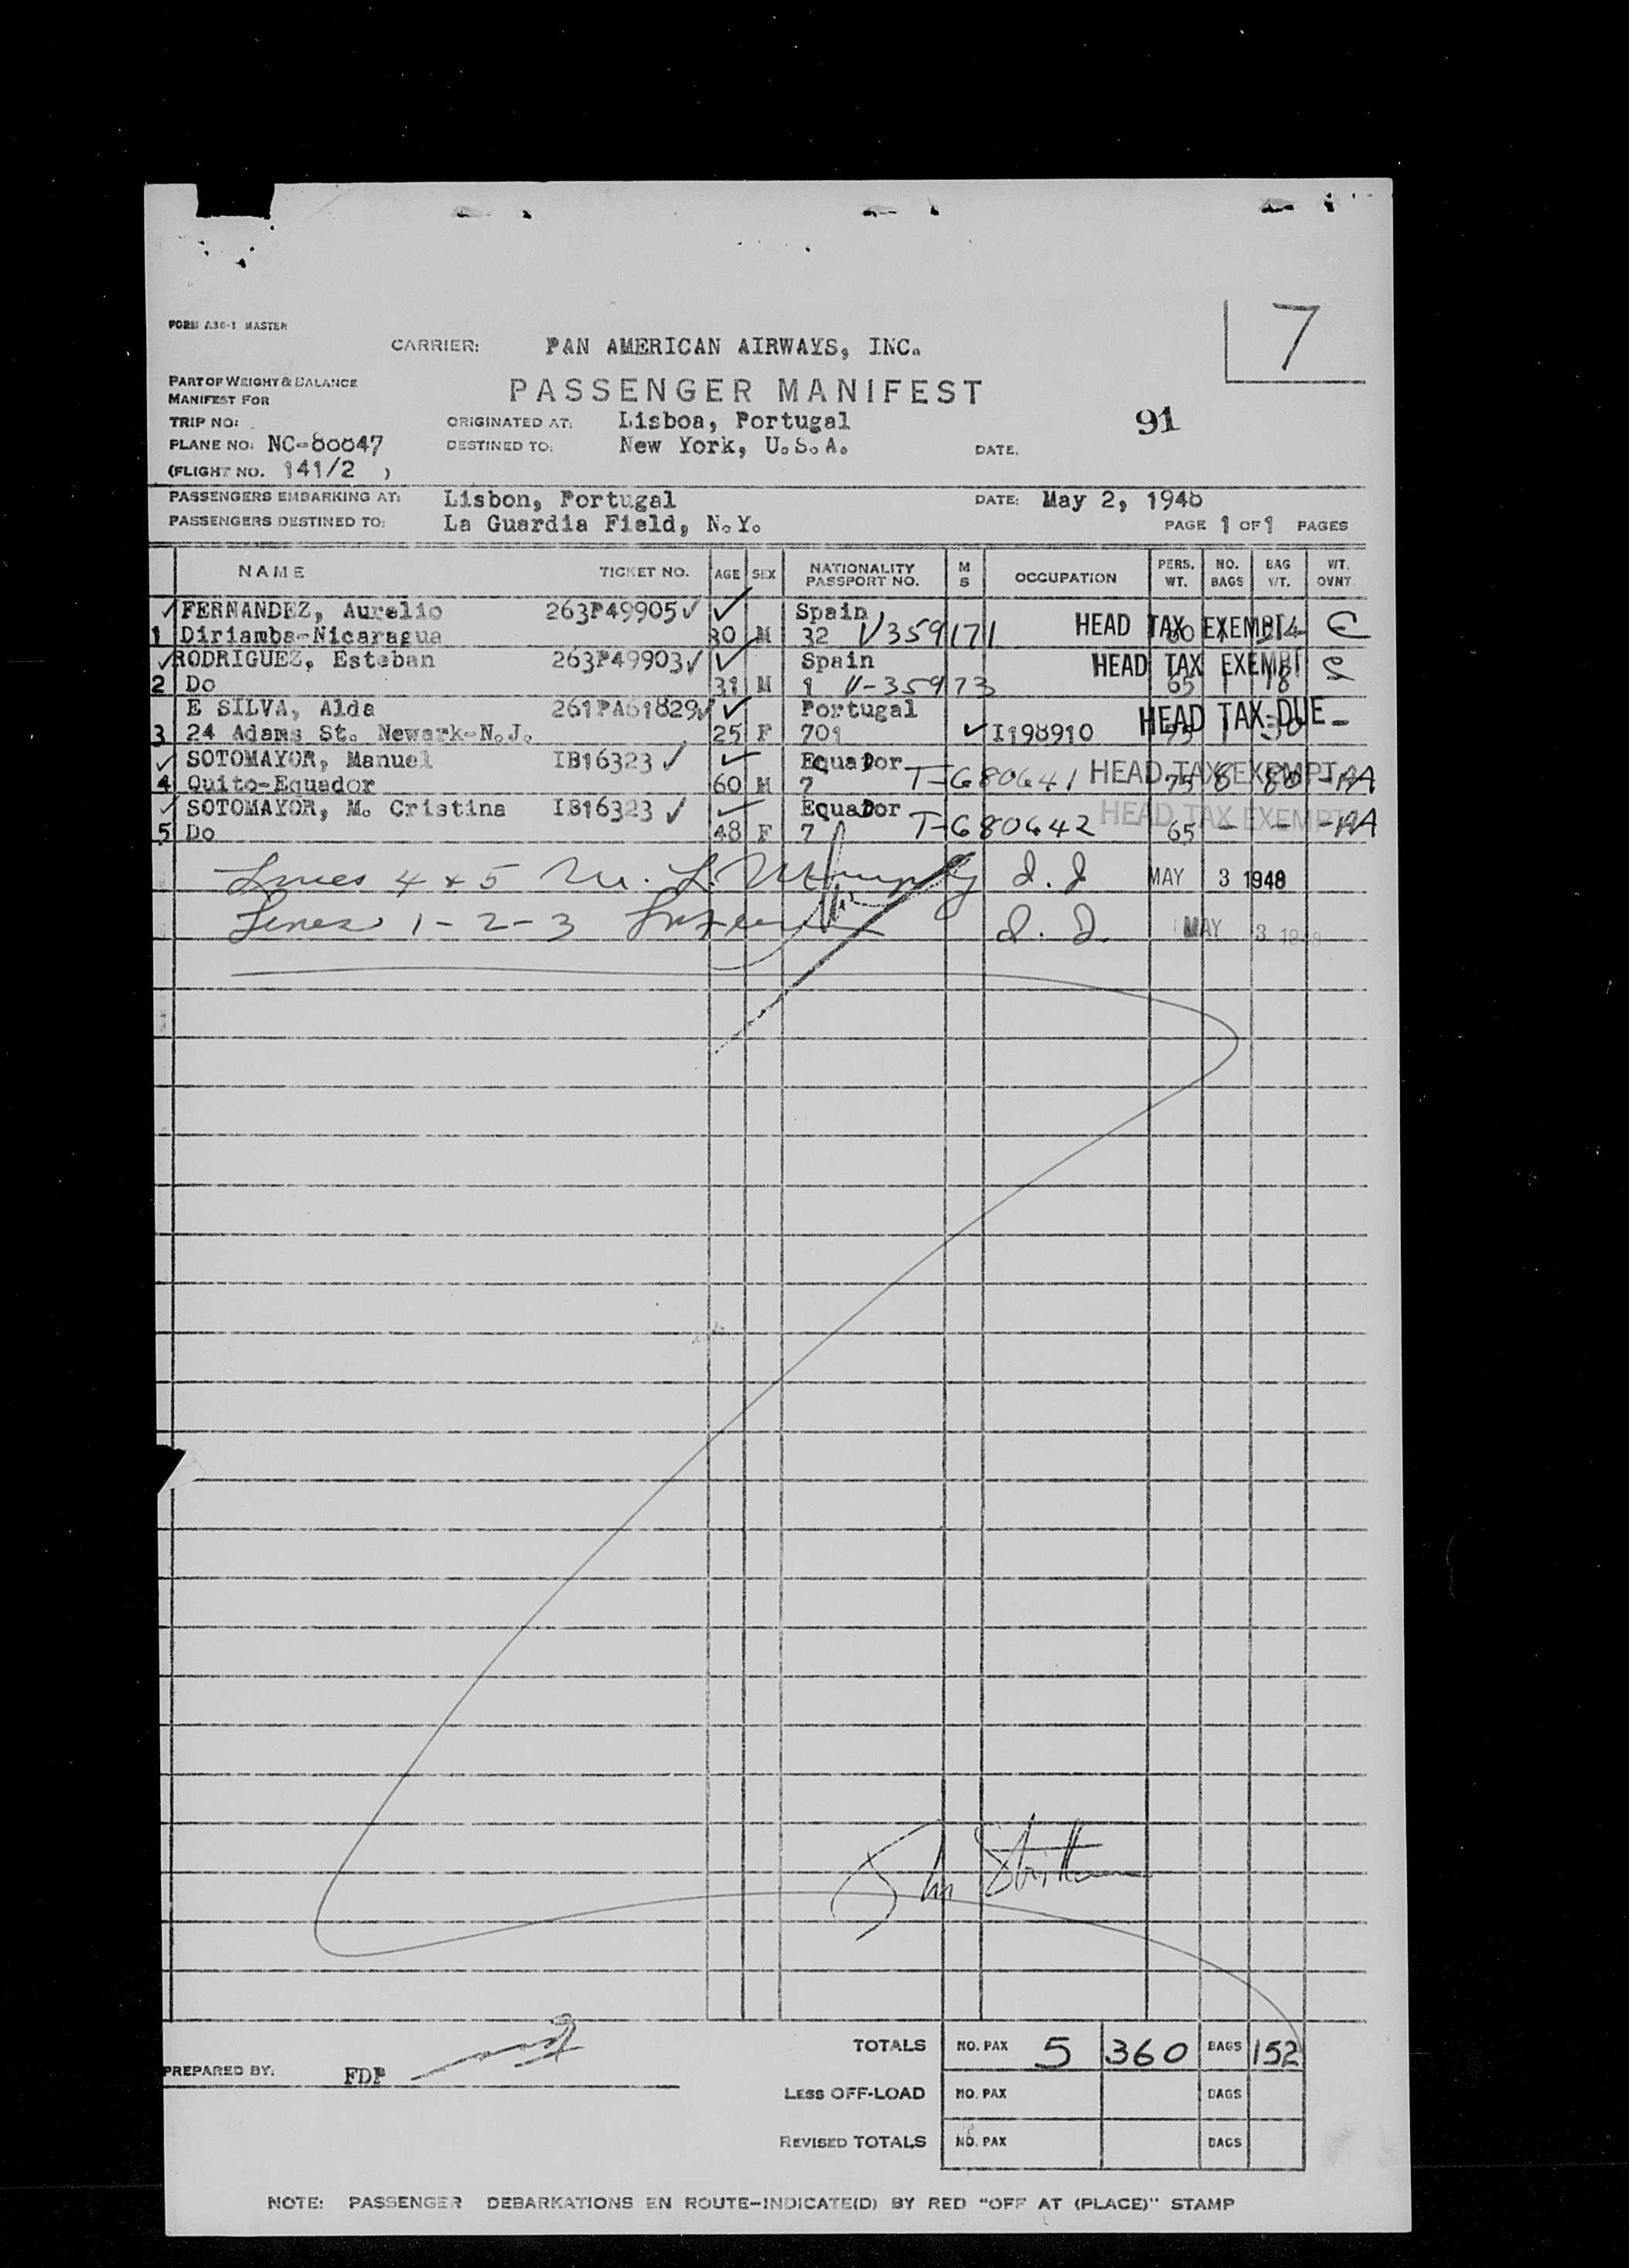 FORM A36-1 MASTER
7
CARRIER: PAN AMERICAN AIRWAYS, INC.
PART OF WEIGHT & BALANCE
MANIFEST FOR
PASSENGER MANIFEST
TRIP NO: ORIGINATED AT: Lisboa, Portugal 91
PLANE NO: NC-80047 DESTINED TO: New York, U.S.A. DATE.
(FLIGHT NO. 141/2 )
PASSENGERS EMBARKING AT: Lisbon, Portugal DATE: May 2, 1948
PASSENGERS DESTINED TO: La Guardia Field, N.Y. PAGE 1 OF 1 PAGES
NAME TICKET NO. AGE SEX NATIONALITY PASSPORT NO. M S OCCUPATION PERS. WT. NO. BAGS BAG WT. WT. OVNT.
✓ FERNANDEZ, Aurelio 263P49905 ✓ ✓ Spain
1 Diriamba-Nicaragua 30 M 32 V359171 HEAD TAX EXEMPT
✓ RODRIGUEZ, Esteban 263P49903 ✓ ✓ Spain HEAD TAX EXEMPT
2 Do 31 M 1 V-35973 65 1 18
E SILVA, Alda 261PA61829 ✓ ✓ Portugal HEAD TAX DUE -
3 24 Adams St. Newark-N.J. 25 F 701 ✓ I198910
✓ SOTOMAYOR, Manuel IB16323 ✓ ✓ Equador
4 Quito-Equador 60 M 7 T-680641 HEAD TAX EXEMPT 75 8 80 -
✓ SOTOMAYOR, M. Cristina IB16323 ✓ ✓ Equador HEAD TAX EXEMPT
5 Do 48 F 7 T-680642 65 - - -
Lines 4 & 5 M. L. Murphy MAY 3 1948
Lines 1-2-3 MAY 3 1948
TOTALS NO. PAX 5 360 BAGS 152
PREPARED BY: FDP
LESS OFF-LOAD NO. PAX BAGS
REVISED TOTALS NO. PAX BAGS
NOTE: PASSENGER DEBARKATIONS EN ROUTE-INDICATE(D) BY RED "OFF AT (PLACE)" STAMP